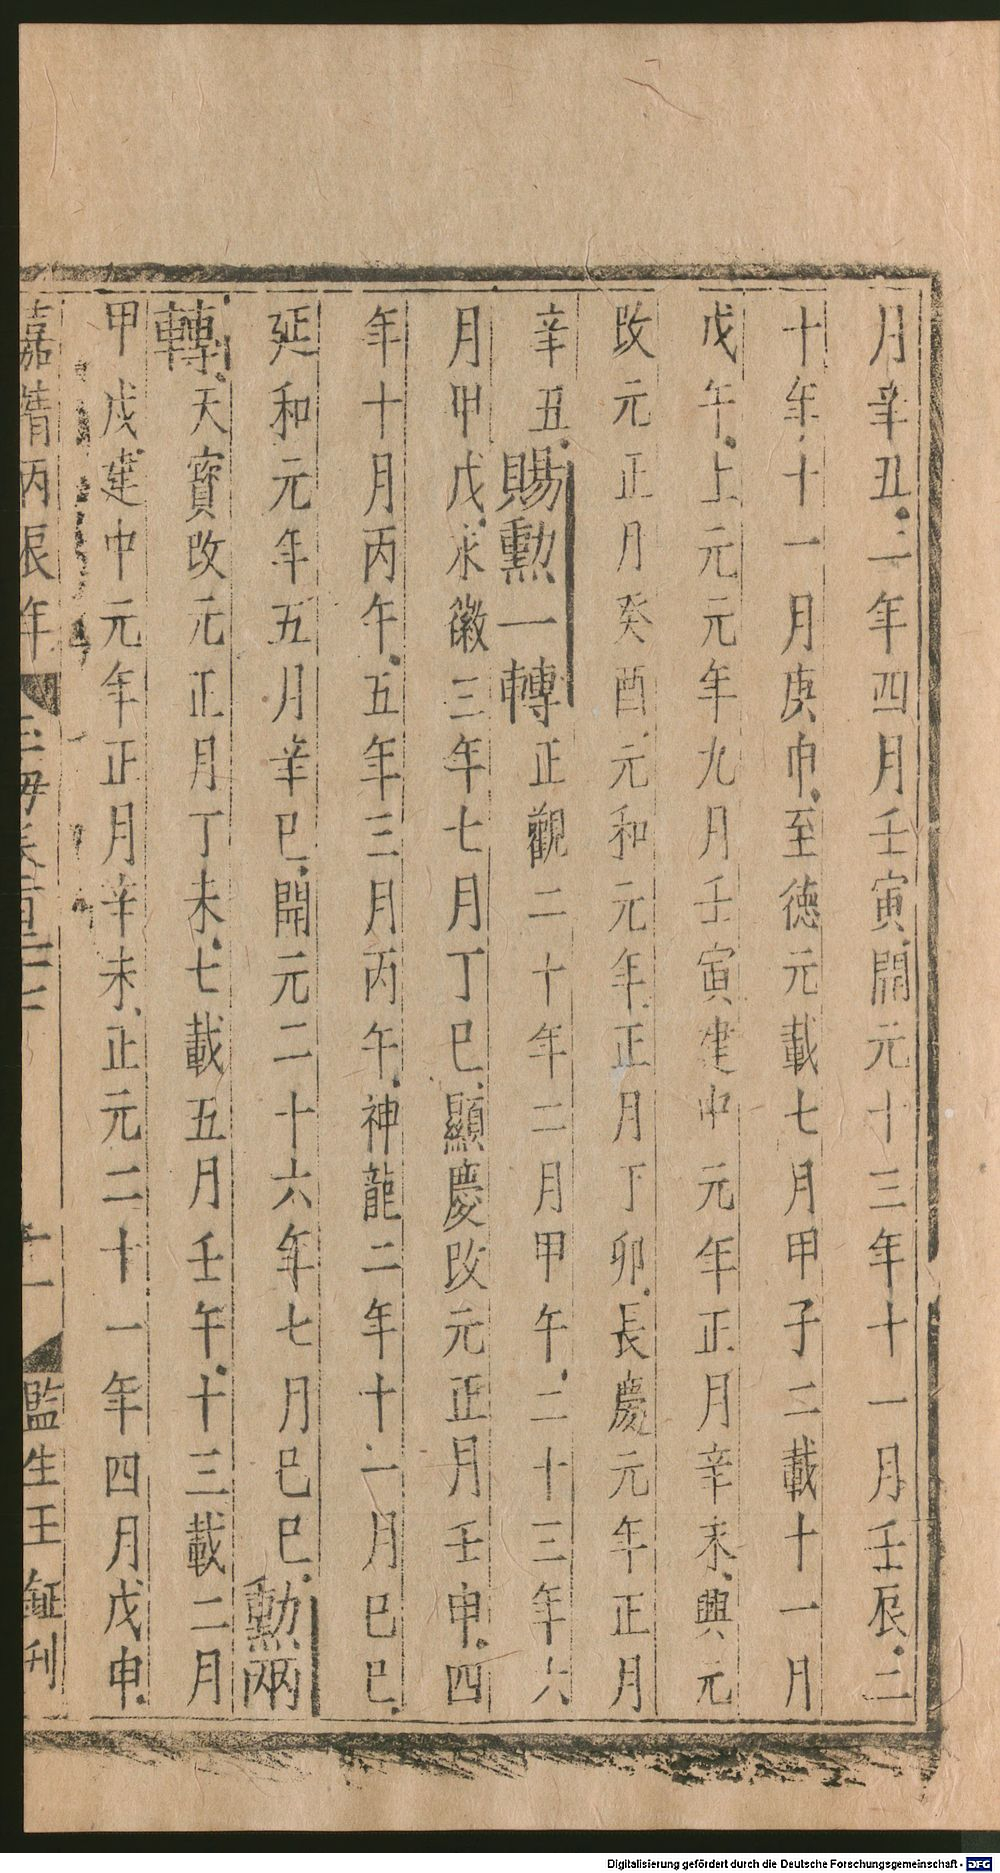 月辛丑二年四月壬寅開元十三年十一月壬辰二
十年十一月庚申至德元載七月甲子二載十一月
戊午上元元年九月壬寅建中元年正月辛未興元
改元正月癸酉元和元年正月丁卯長慶元年正月
辛丑賜勲一轉正觀二十年二月甲午二十三年六
月甲戊永徽三年七月丁巳顯慶改元正月壬申四
年十月丙午五年三月丙午神龍二年十一月巳巳
延和元年五月辛巳開元二十六年七月巳巳勲兩
轉天寳改元正月丁未七載五月壬午十三載二月
甲戊建中元年正月辛未正元二十一年四月戊申
嘉靖丙辰年
玉海卷百二十
十一
監生王鉦刊
Digitalisierung gefördert durch die Deutsche Forschungsgemeinschaft - DFG